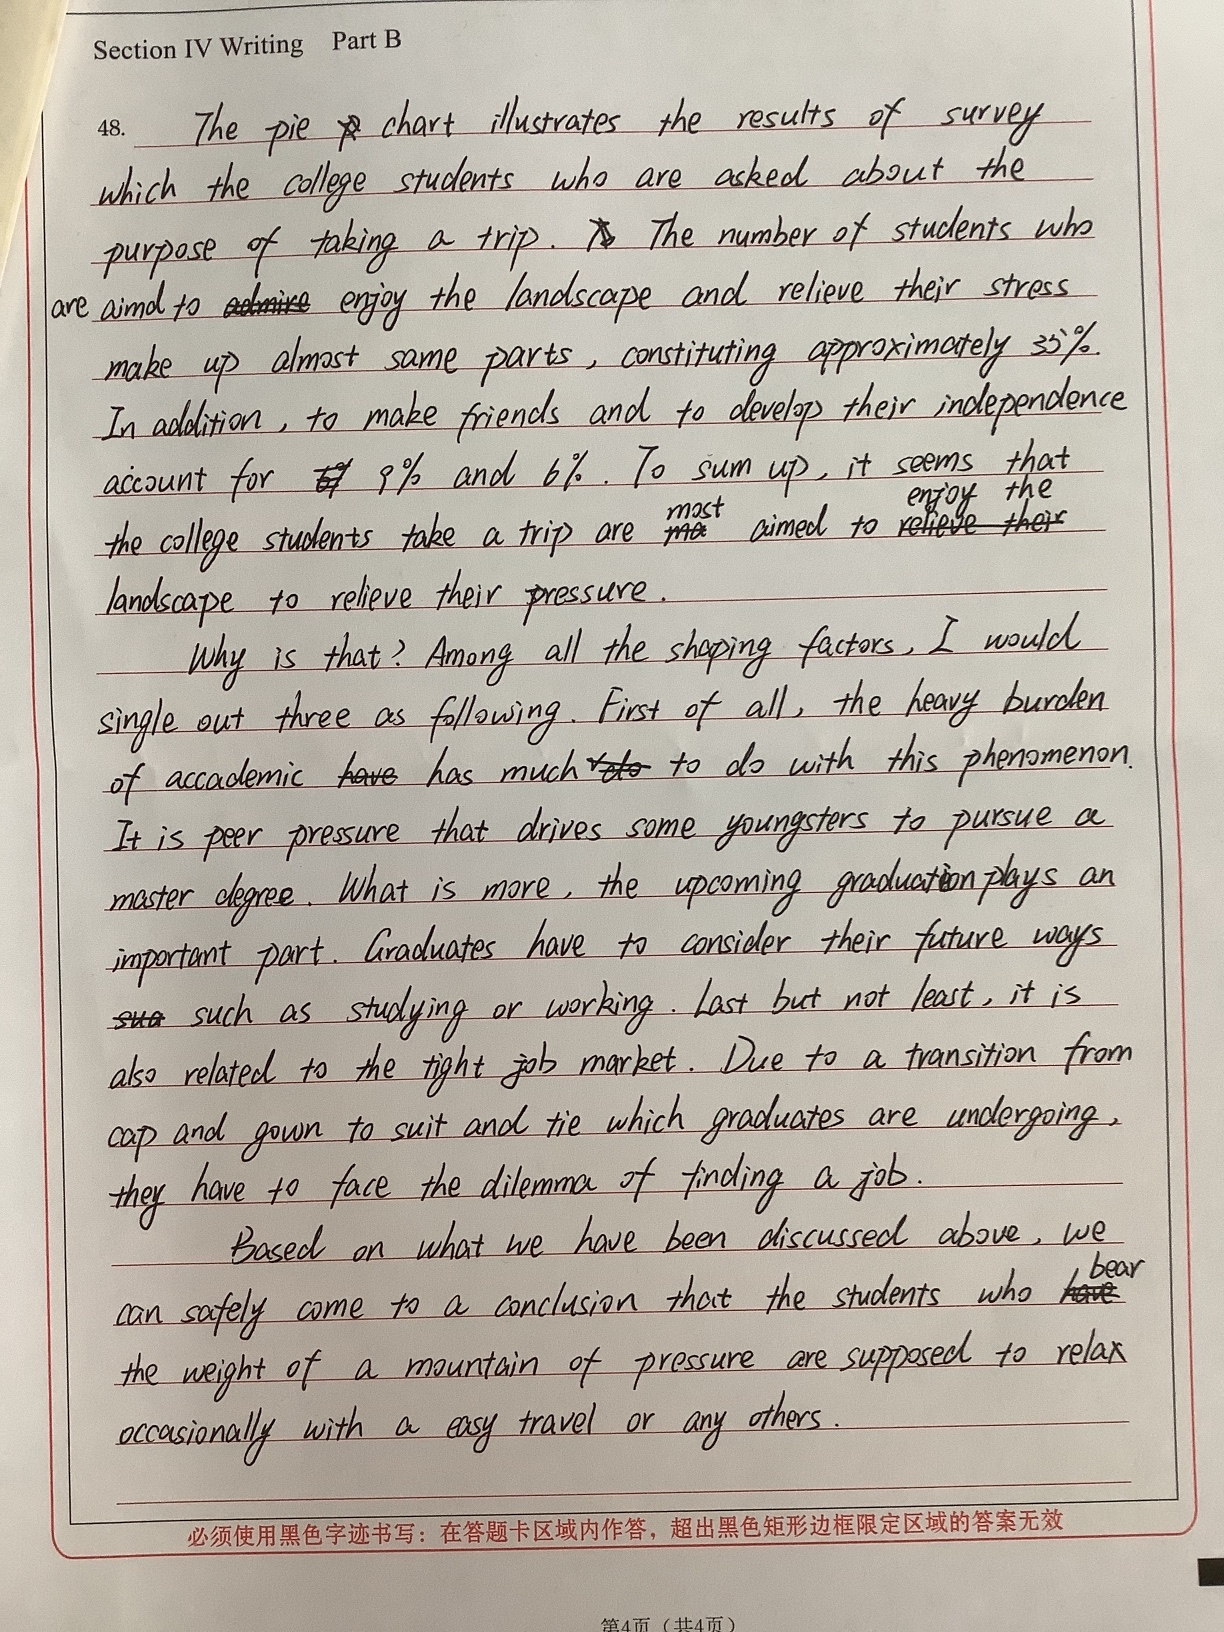 Section IV Writing Part B
48. The pie chart illustrates the results of survey
which the college students who are asked about the
purpose of taking a trip. The number of students who
are aimd to admire enjoy the landscape and relieve their stress
make up almost same parts, constituting approximately 35%.
In addition, to make friends and to develop their independence
account for 9% and 6%. To sum up, it seems that
most enjoy the
the college students take a trip are aimed to relieve their
landscape to relieve their pressure.
Why is that? Among all the shaping factors, I would
single out three as following. First of all, the heavy burden
of accademic have has much do to do with this phenomenon.
It is peer pressure that drives some youngsters to pursue a
master degree. What is more, the upcoming graduation plays an
important part. Graduates have to consider their future ways
such as studying or working. Last but not least, it is
also related to the tight job market. Due to a transition from
cap and gown to suit and tie which graduates are undergoing,
they have to face the dilemma of finding a job.
Based on what we have been discussed above, we
bear
can safely come to a conclusion that the students who have
the weight of a mountain of pressure are supposed to relax
occasionally with a easy travel or any others.
必须使用黑色字迹书写：在答题卡区域内作答，超出黑色矩形边框限定区域的答案无效
第4页（共4页）